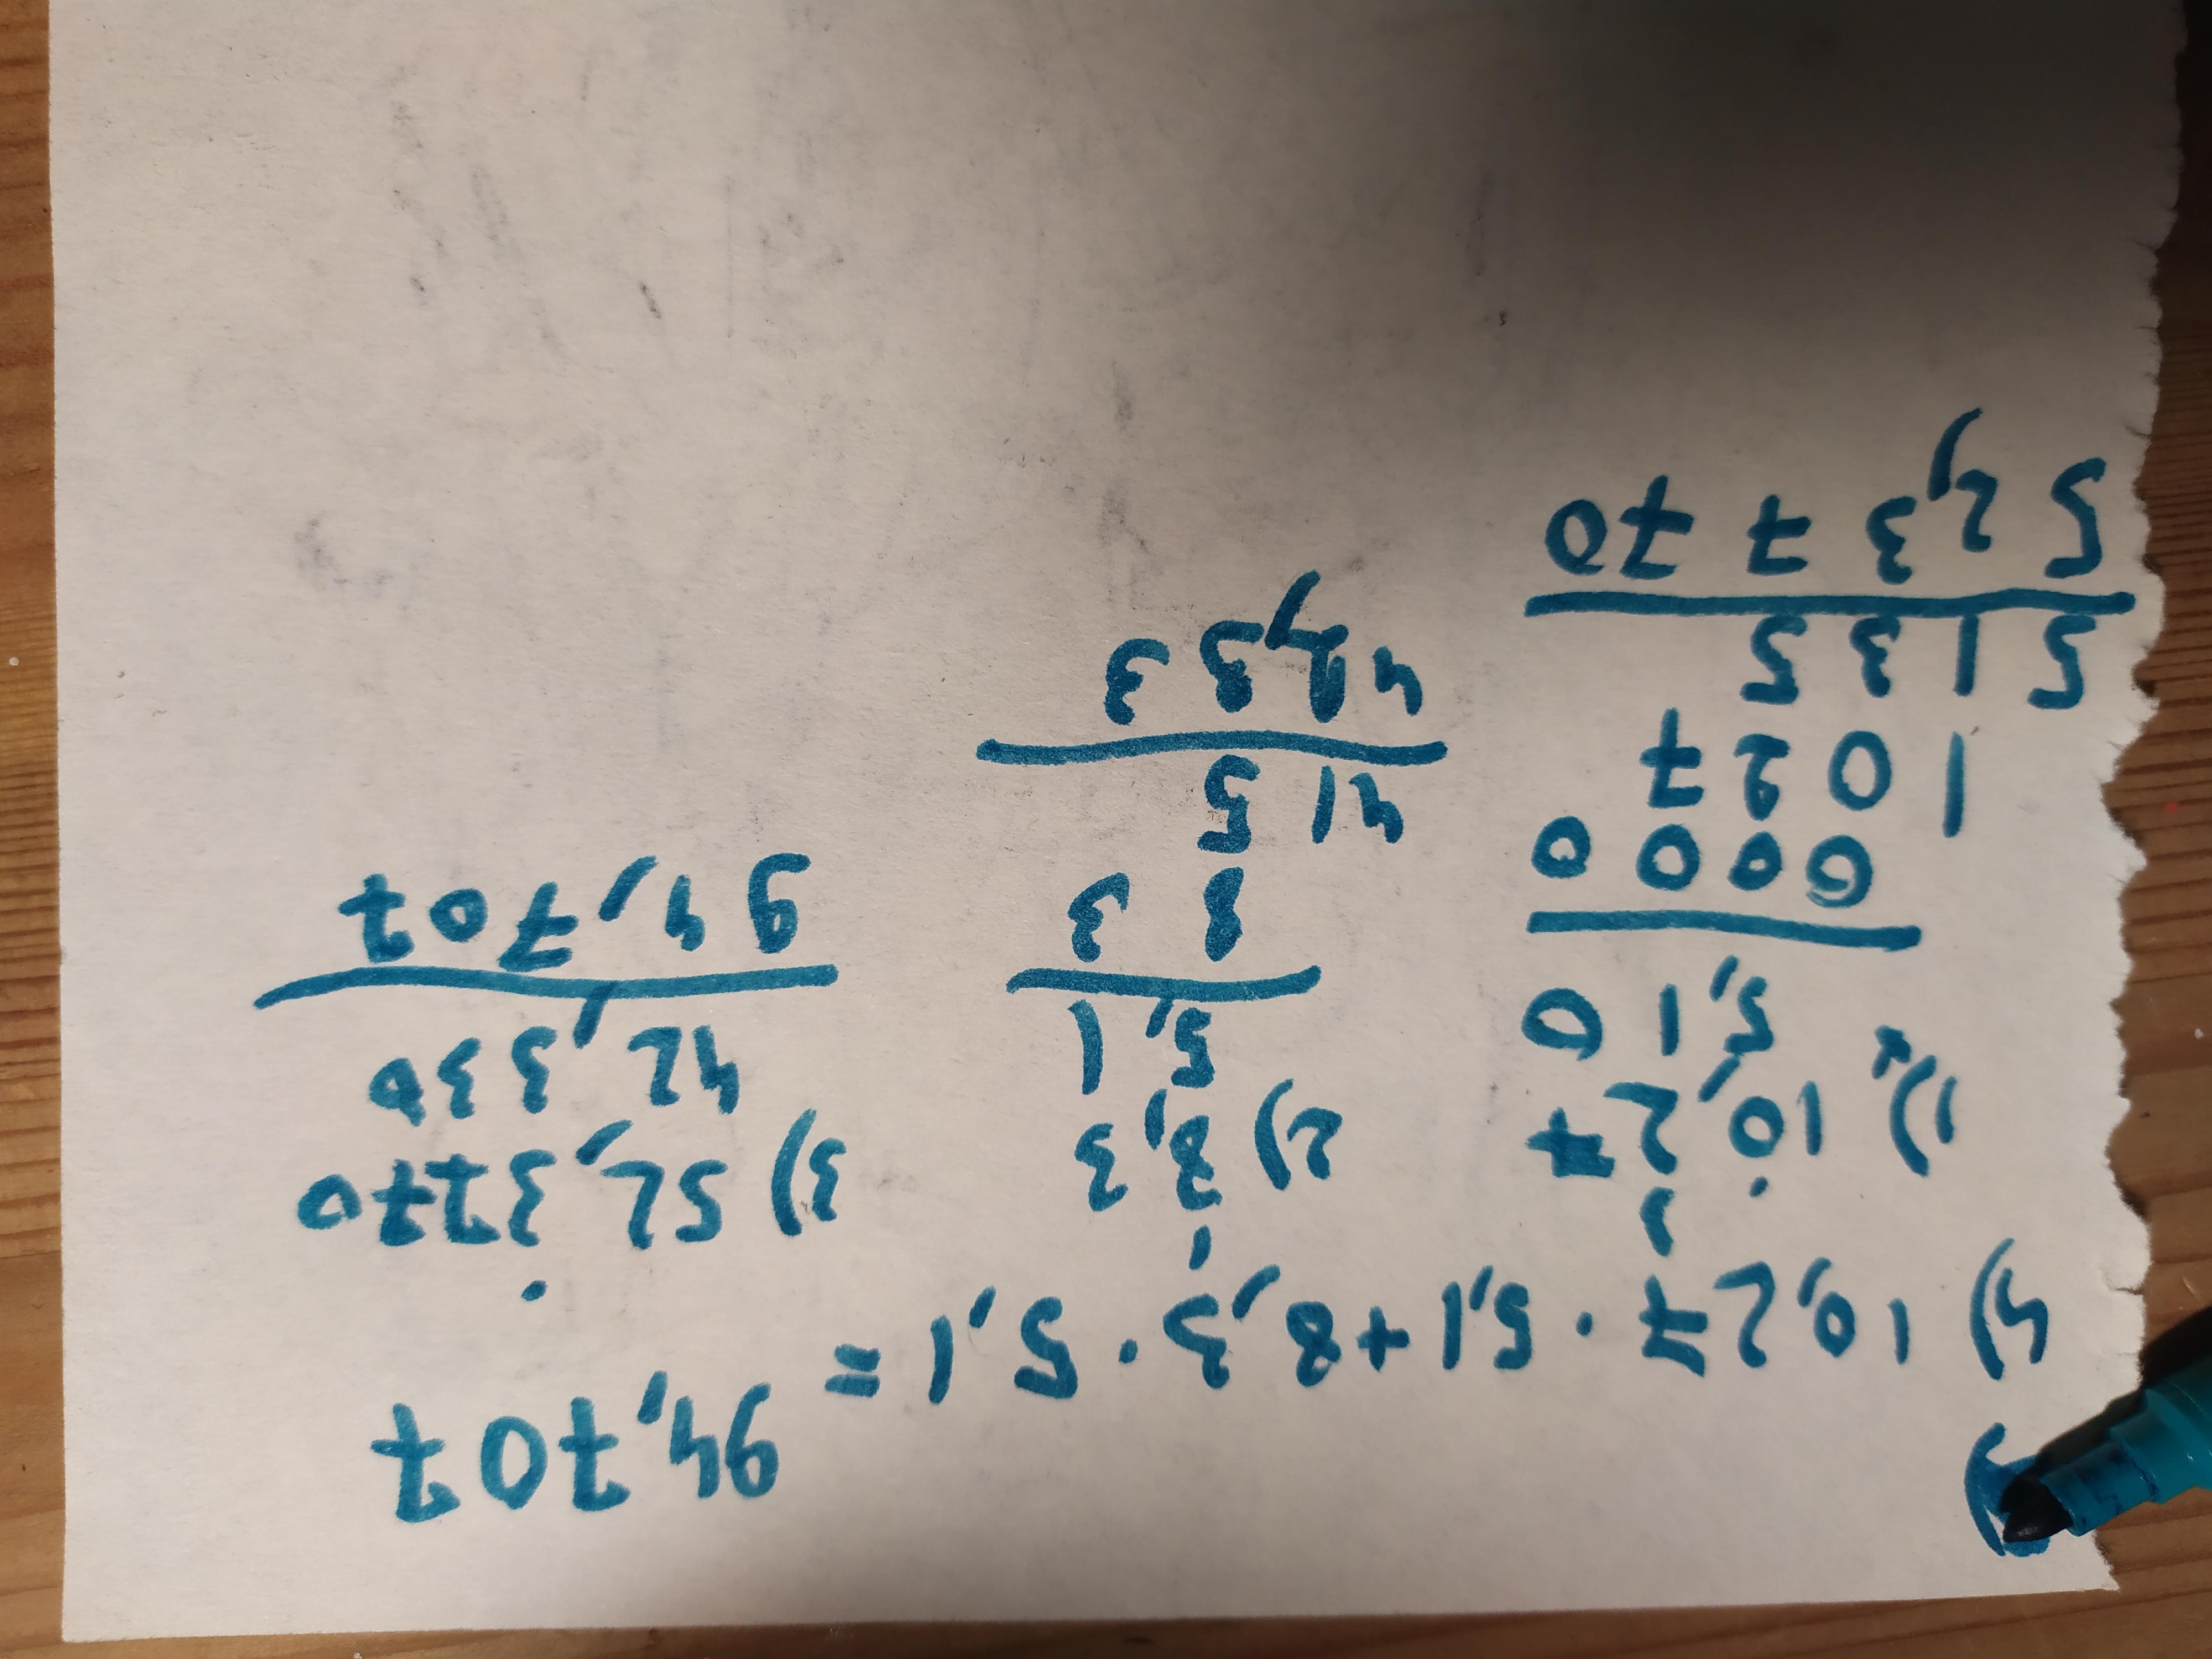 4) 10,27 · 5,1 + 8,3 · 5,1 = 94,707
1) 10,27
5,10
0000
1027
5135
52,3770
2) 8,3
5,1
8 3
415
42,33
3) 52,3770
42,330
94,707